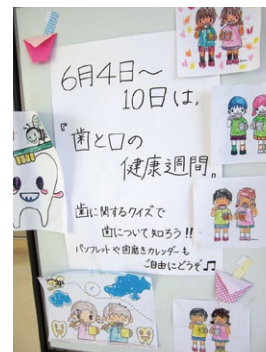 6月4日～
10日は、
『歯と口の
健康週間』
歯に関するクイズで
歯について知ろう!!
パンフレットや歯磨きカレンダーも
ご自由にどうぞ♫